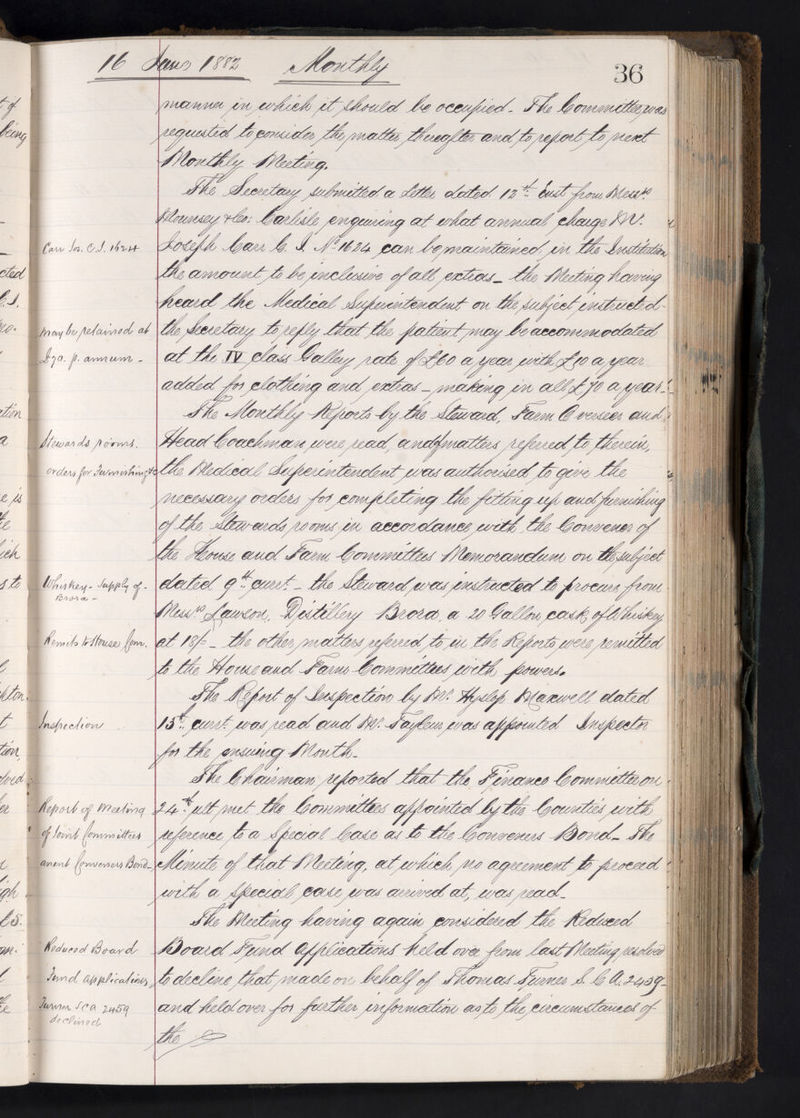 16 Jany 1882 Monthly 36
manner in which it should be occupied. The Committee was
requested to consider the matter thereafter and to report to next
Monthly Meeting.
The Secretary submitted a letter dated 12th Inst from Messrs
Mounsey & Co. Carlisle enquiring at what annual charge Mr.
Carr Jos. C.I. 1624
Joseph Carr C.I. No 1624 can be maintained in the Institution
the amount to be inclusive of all extras – the Meeting having
heard the Medical Superintendent on the subject instructed
may be retained at
the Secretary to reply that the patient may be accommodated
£70. p. annum –
at the IV class Gallery rate of £60 a year with £10 a year
added for clothing and extras – making in all £70 a year.
The Monthly Reports by the Steward, Farm Overseer and
Stewards rooms.
Head Coachman were read, and of matters referred to therein,
orders for Furnishing &c
the Medical Superintendent was authorised to give the
necessary orders for completing the fitting up and furnishing
of the Stewards rooms in accordance with the Convener of
the House and Farm Committees Memorandum on the subject
Whiskey – Supply of –
dated 9th curt. – the Steward was instructed to procure from
Brora –
Messrs Lawson, Distillery Brora a 20 Gallon cask of Whiskey
Remits to House Com.
at 18/- – the other matters referred to in the Reports were remitted
to the House and Farm Committees with powers.
The Report of Inspection by Mr. Hyslop Maxwell dated
Inspection
15th curt. was read and Mr. Taylour was appointed Inspector
for the ensuing Month.
The Chairman reported that the Finance Committee on
Report of Meeting
24th ult met the Committees appointed by the Counties with
of Joint Committees
reference to a Special Case as to the Conveners Bond – The
anent Conveners Bond –
Minute of that Meeting, at which no agreement to proceed
with a special case was arrived at, was read –
The Meeting having again considered the Reduced
Reduced Board
Board Fund Applications held over from last Meeting resolved
Fund applications
to decline that made on behalf of Thomas Turner S.C.A. 2459 –
Turner SCA 2459
and held over for further information as to the circumstances of
declined
the